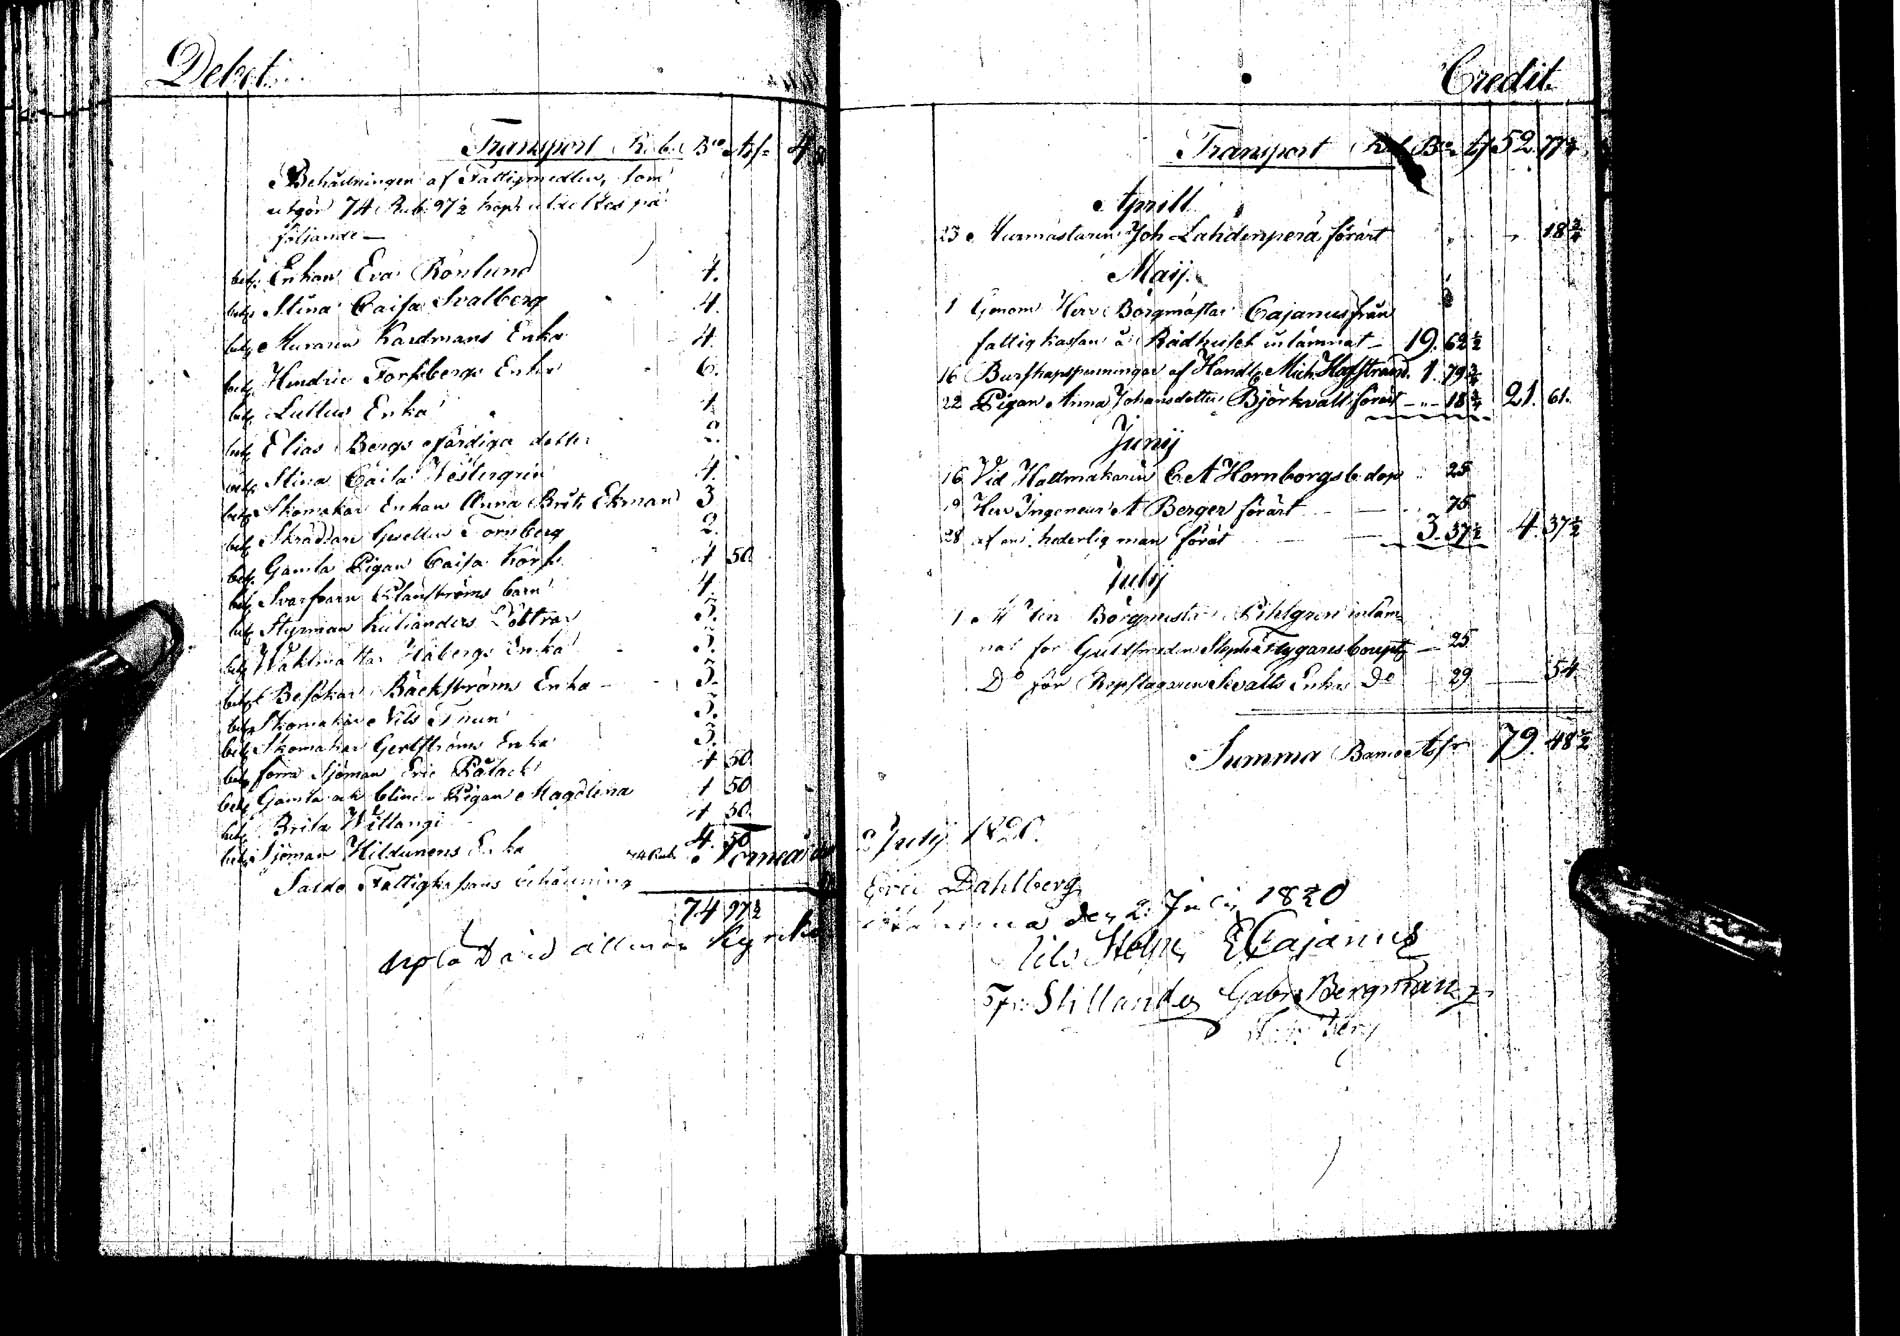 Debet.
Transport Rub. Bco Ass. 4 50
Behållningen af Fattigmedlen, som
utgör 74 Rub. 97½ kop. utdeltes på
följande
bet. Enkan Eva Rönlund 4.
bet. Stina Caisa Svalberg 4.
bet. Muraren Kardmans Enka 4.
bet. Hindric Forsbergs Enka 6.
bet. Lullus Enka 4
bet. Elias Bergs ofärdiga dotter 2.
bet. Stina Caisa Westergren 4.
bet. Skomakar Enkan Anna Brita Ekman 3
bet. Skräddare Gesellen Tornberg 2.
bet. Gamla Pigan Caisa Korp 4 50.
bet. Svarfvarn barn 4.
bet. Styrman Döttrar 3.
bet. Wåhlmästar Enka 3.
bet. Besökar Bäckströms Enka 3.
bet. Skomakar Nils Thun 3.
bet. Skomakar Gertströms Enka 3.
bet. förra Sjöman Eric 4 50
bet. Gamla och blinda Pigan Magdlena 4 50
bet. Brita Wittangi 4 50.
bet. Sjöman Hildunens Enka 4. 50
Saldo Fattigkassans behållning
74 97½
Torneå
allmän Kyrko
Credit.
Transport Bco Ass 52 77¼
Aprill
23 Murmästaren Joh Lahdenperä förärt 18¾
Maij.
1 Genom Herr Borgmästar Cajanus från
fattigkassan å Rådhuset inlämnat 19. 62½
16 Burskapspenningar af Handl. Mich. Hofstrand. 1. 79¾
22 Pigan Anna Johansdotter Björkvall förärt 18¾ 21. 61.
Junij
16 Vid Hattmakaren C A Hornborgs b. dop 25
19 Herr Ingenieur A Berger förärt 75
28 af en hederlig man förärt 3. 37½ 4. 37½
Julij
1 Borgmästar Pihlgren inläm
nat för Guldsmeden Flygares 25
Do för Repslagaren Svalls Enka Do 29 54
Summa Banco Ass 79. 48½
2 Julij 1820.
Eric Dahlberg
den 2 Julij 1820
E Cajanus
Gabr. Bergman